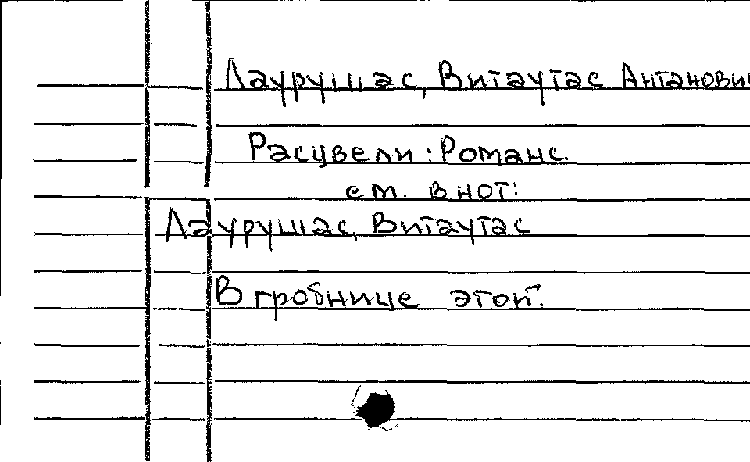 Лаурушас, Витаутас Антанович
Расцвели: Романс.
см. в нот:
Лаурушас, Витаутас
В гробнице этой.